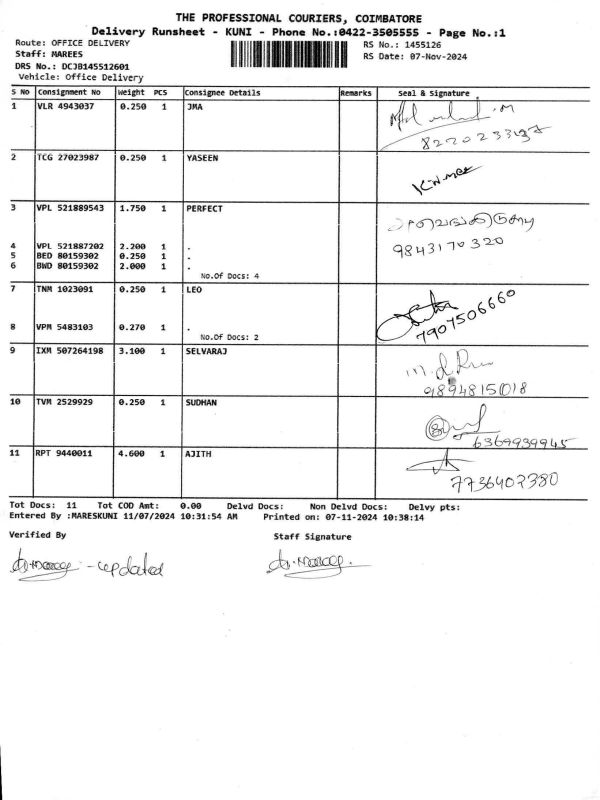 THE PROFESSIONAL COURIERS, COIMBATORE
Delivery Runsheet - KUNI - Phone No.:0422-3505555 - Page No.:1
Route: OFFICE DELIVERY RS No.: 1455126
Staff: MAREES RS Date: 07-Nov-2024
DRS No.: DCJB145512601
Vehicle: Office Delivery
S No Consignment No Weight PCS Consignee Details Remarks Seal & Signature
1 VLR 4943037 0.250 1 JMA
2 TCG 27023987 0.250 1 YASEEN
3 VPL 521889543 1.750 1 PERFECT
9843170320
4 VPL 521887202 2.200 1 .
5 BED 80159302 0.250 1 .
6 BWD 80159302 2.000 1 .
No.Of Docs: 4
7 TNM 1023091 0.250 1 LEO
7907506660
8 VPM 5483103 0.270 1 .
No.Of Docs: 2
9 IXM 507264198 3.100 1 SELVARAJ
10 TVM 2529929 0.250 1 SUDHAN
6369939945
11 RPT 9440011 4.600 1 AJITH
Tot Docs: 11 Tot COD Amt: 0.00 Delvd Docs: Non Delvd Docs: Delvy pts:
Entered By :MARESKUNI 11/07/2024 10:31:54 AM Printed on: 07-11-2024 10:38:14
Verified By Staff Signature
- updated